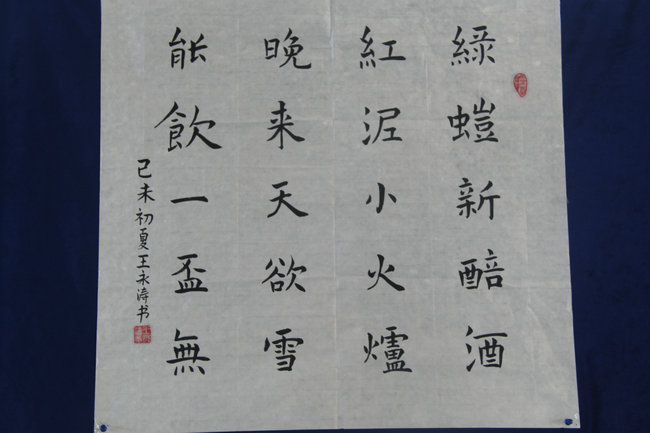 綠螘新醅酒
紅泥小火爐
晚来天欲雪
能飲一盃無
己未初夏王永濤书